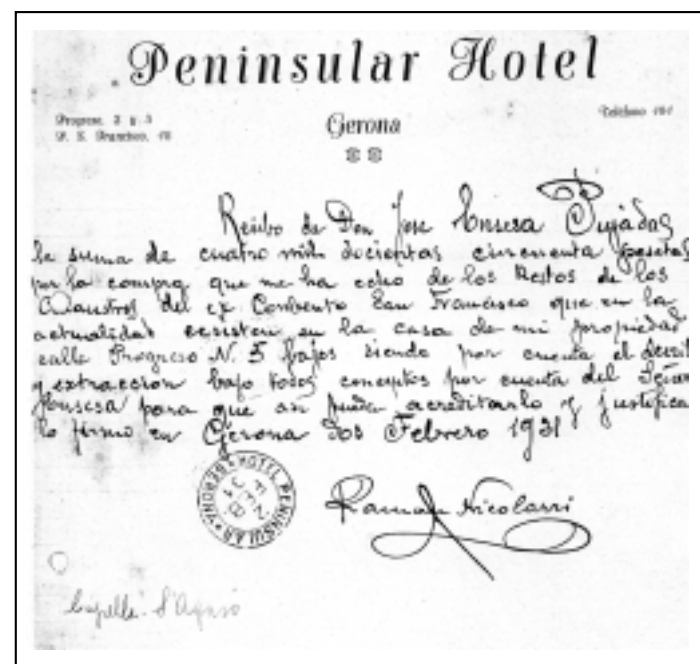 Peninsular Hotel
Progreso, 3 y 5
Teléfono 161
P. S. Francisco, 16
Gerona
Recibo de Don Jose Ensesa Pujadas
la suma de cuatro mil docientas cincuenta pesetas
por la compra que me ha echo de los Restos de los
Claustros del ex Combento San Francisco que en la
actualidad ecsisten en la casa de mi propiedad
calle Progreso N. 5 bajos siendo por cuenta el
y extraccion bajo todos conceptos por cuenta del Señor
Ensesa para que asi pueda acreditarlo y justificar
lo firmo en Gerona dos Febrero 1931
HOTEL PENINSULAR GERONA
2 FEB 31
Ramon Nicolazzi
Capella S'Agaró